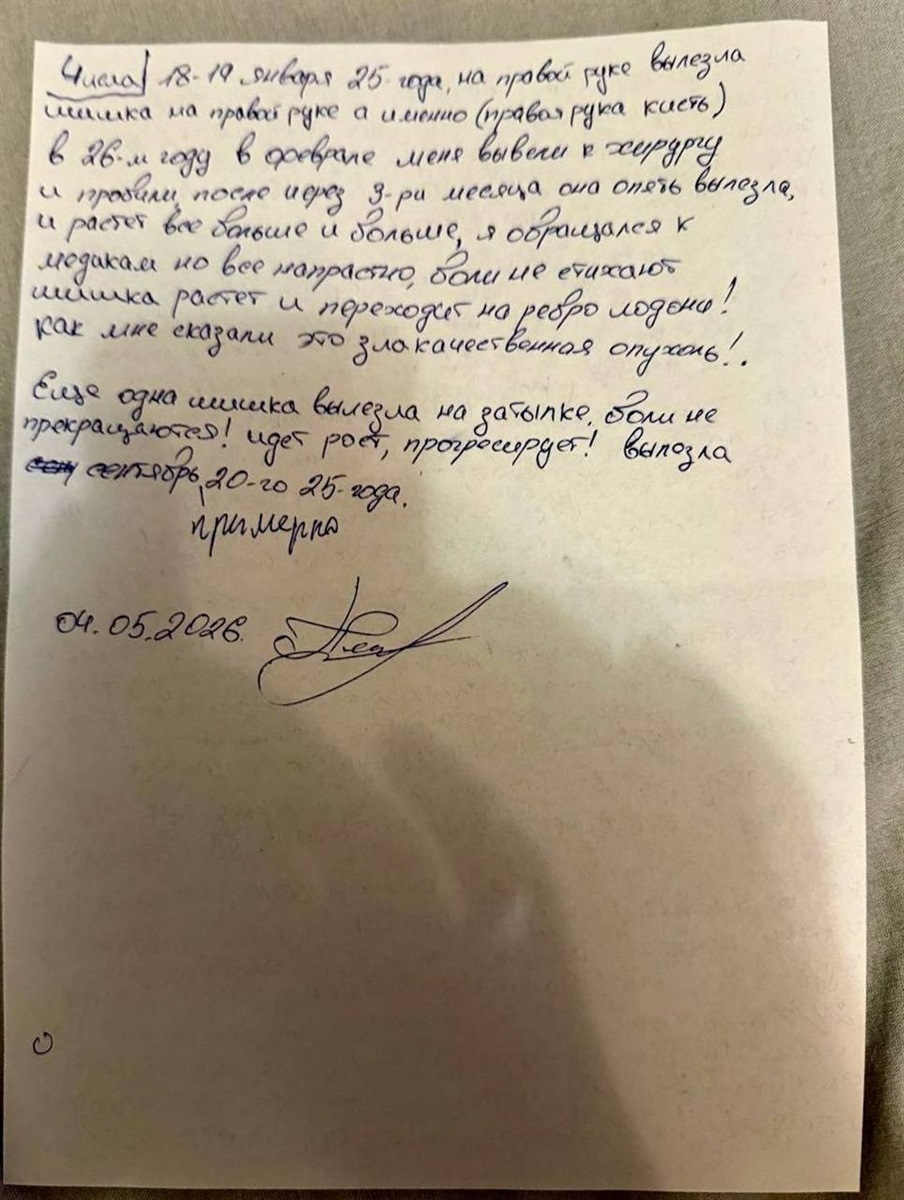 Числа 18-19 января 25-года, на правой руке вылезла
шишка на правой руке а именно (правая рука кисть)
в 26-м году в феврале меня вывели к хирургу
и пробили, после через 3-ри месяца она опять вылезла,
и растет все больше и больше, я обращался к
медикам но все напрастно, боли не стихают
шишка растет и переходит на ребро лодони!
как мне сказали это злакачественная опухоль!.
Еще одна шишка вылезла на затылке, боли не
прекращаются! идет рост, прогресирует! вылезла
сентябрь, 20-го 25-года.
примерно
04.05.2026.